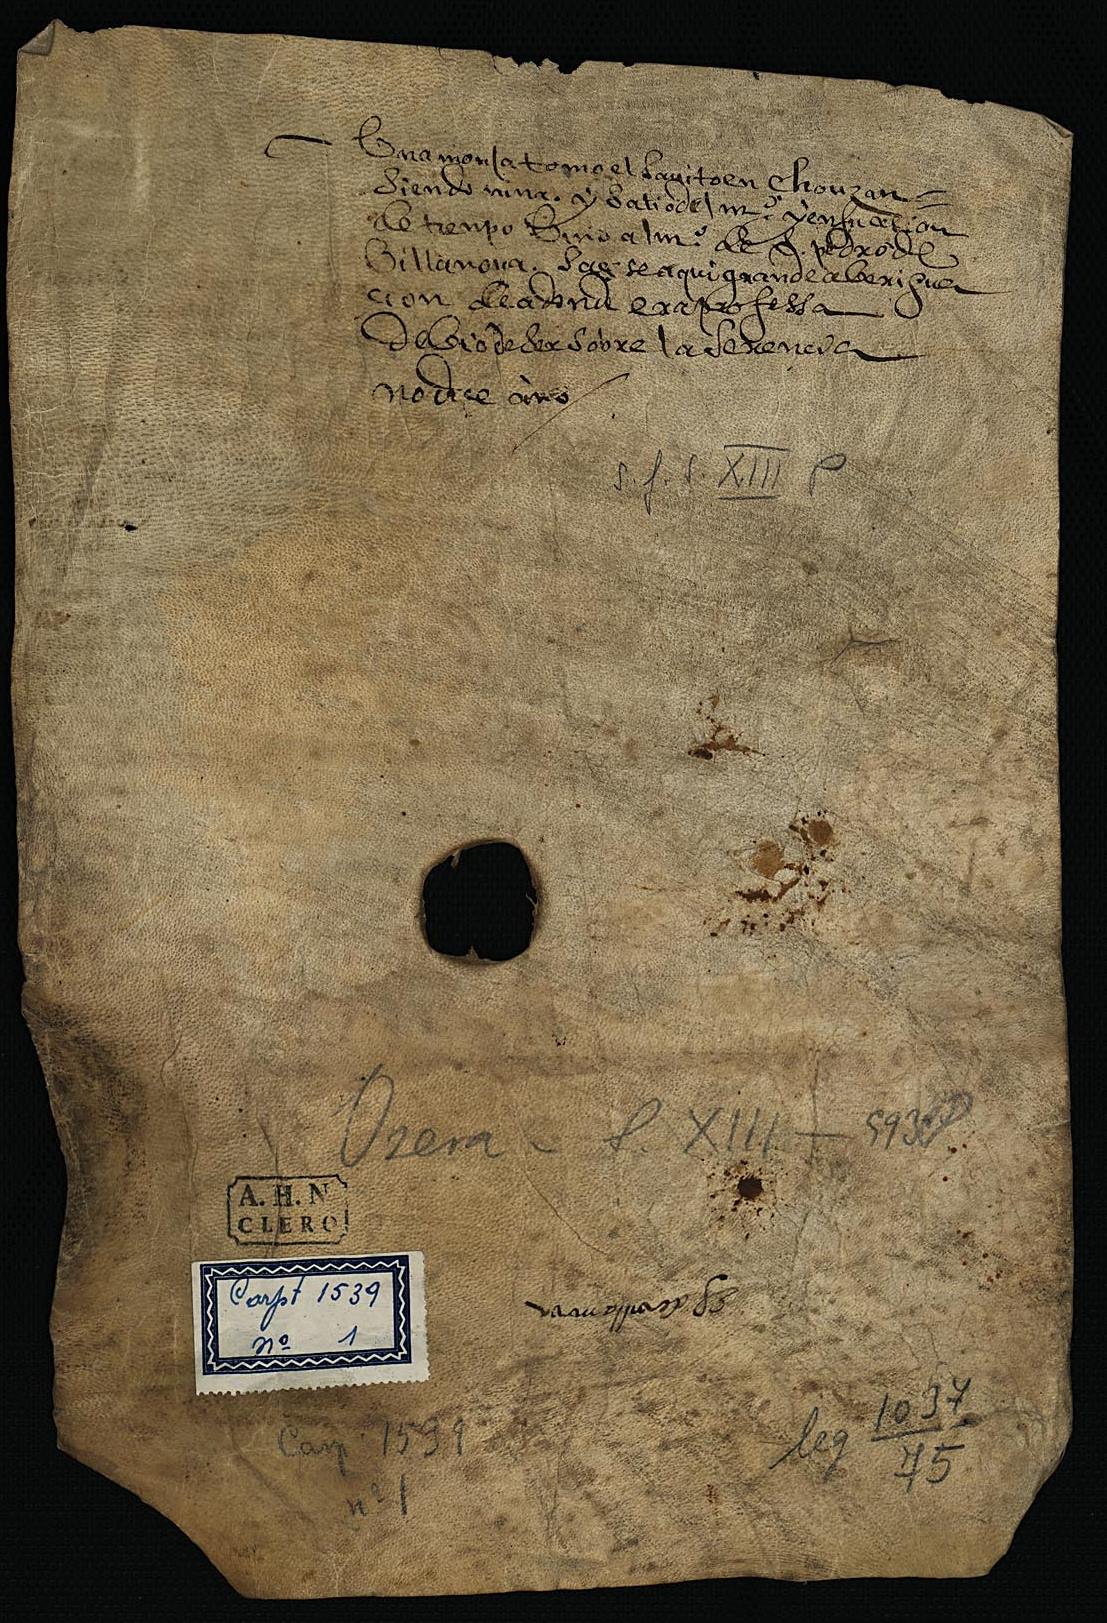 Una monja tomo el havito en Chouzan
siendo nina. y Saliò del mº. y en sucesion
de tienpo Vino al mº. de S. pedro de
Villanova. hazese aqui grande aberigua
cion de adonde era professa
debiò de ser sobre la herencia
no dice año
s. f. s. XIII P
Osera - S. XIII - 593
A. H. N
CLERO
Carpt 1539
nº 1
de Villanova
Carp. 1539
nº 1
leg 1037
75